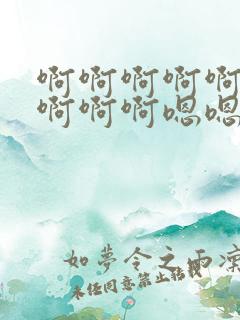 啊啊啊啊啊
啊啊啊嗯嗯
如夢令之雨凉
未经同意禁止转载